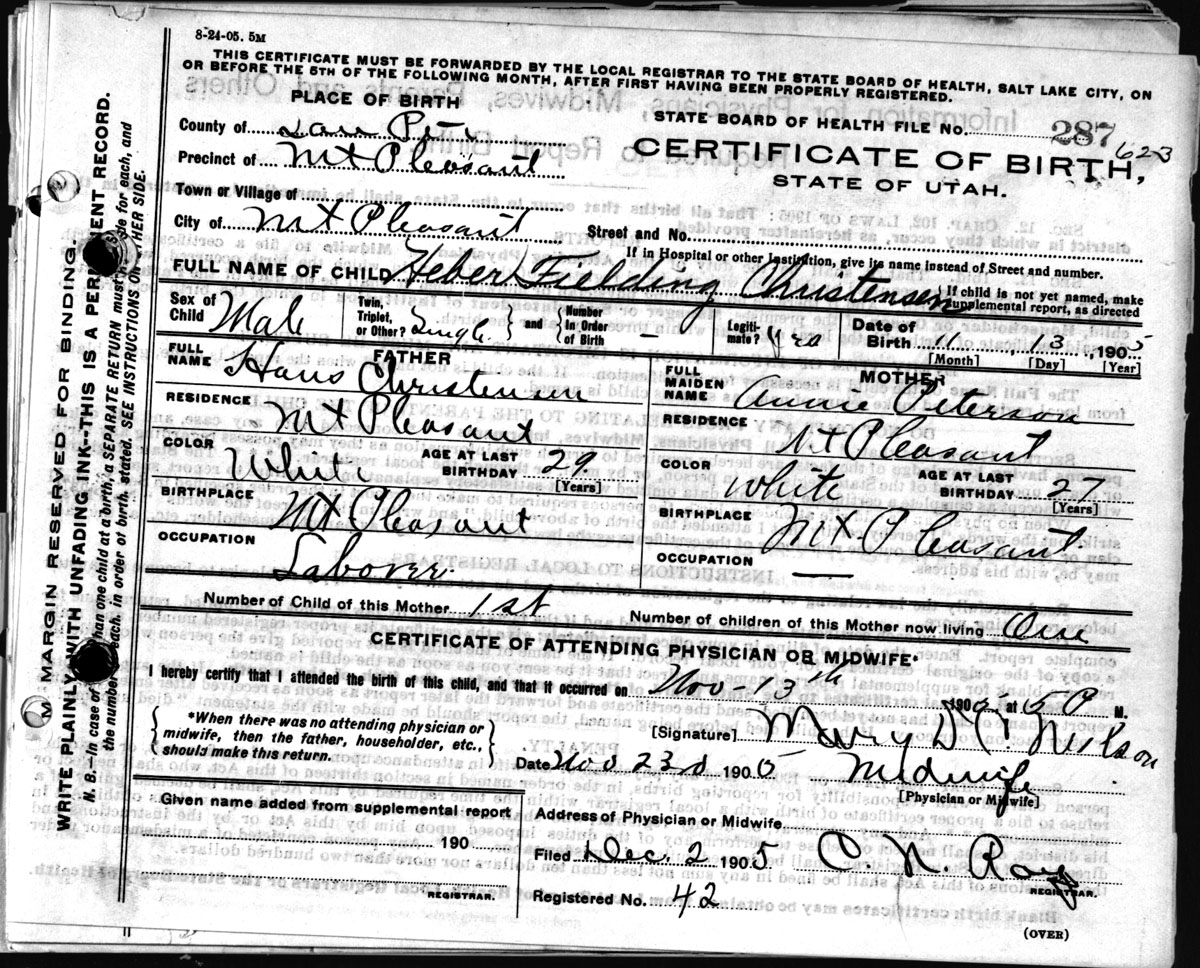 8-24-05. 5M
THIS CERTIFICATE MUST BE FORWARDED BY THE LOCAL REGISTRAR TO THE STATE BOARD OF HEALTH, SALT LAKE CITY, ON
OR BEFORE THE 5TH OF THE FOLLOWING MONTH, AFTER FIRST HAVING BEEN PROPERLY REGISTERED.
PLACE OF BIRTH
STATE BOARD OF HEALTH FILE No. 287
623
County of San Pete
CERTIFICATE OF BIRTH,
STATE OF UTAH.
Precinct of Mt Pleasant
Town or Village of
City of Mt Pleasant
Street and No.
If in Hospital or other Institution, give its name instead of Street and number.
FULL NAME OF CHILD Heber Fielding Christensen { If child is not yet named, make supplemental report, as directed
Sex of Child Male Twin, Triplet, or Other? Single } and { Number In Order of Birth — Legiti- mate? Yes Date of Birth 11, 13, 1905
[Month] [Day] [Year]
FATHER
FULL NAME Hans Christensen
RESIDENCE Mt Pleasant
COLOR White AGE AT LAST BIRTHDAY 29
[Years]
BIRTHPLACE Mt Pleasant
OCCUPATION Laborer.
MOTHER
FULL MAIDEN NAME Annie Peterson
RESIDENCE Mt Pleasant
COLOR White AGE AT LAST BIRTHDAY 27
[Years]
BIRTHPLACE Mt Pleasant
OCCUPATION —
Number of Child of this Mother 1st Number of children of this Mother now living One
CERTIFICATE OF ATTENDING PHYSICIAN OR MIDWIFE*
I hereby certify that I attended the birth of this child, and that it occurred on Nov - 13th
1905 at 5 P M.
{ *When there was no attending physician or midwife, then the father, householder, etc., should make this return. }
[Signature] Mary Neilson
Date Nov 23d 1905 Midwife
[Physician or Midwife]
Given name added from supplemental report
190
REGISTRAR.
Address of Physician or Midwife
Filed Dec. 2 1905 C. N. Ray
REGISTRAR.
Registered No. 42
(OVER)
MARGIN RESERVED FOR BINDING.
WRITE PLAINLY WITH UNFADING INK--THIS IS A PERMANENT RECORD.
N. B.--In case of more than one child at a birth, a SEPARATE RETURN must be made for each, and
the number of each, in order of birth, stated. SEE INSTRUCTIONS ON OTHER SIDE.